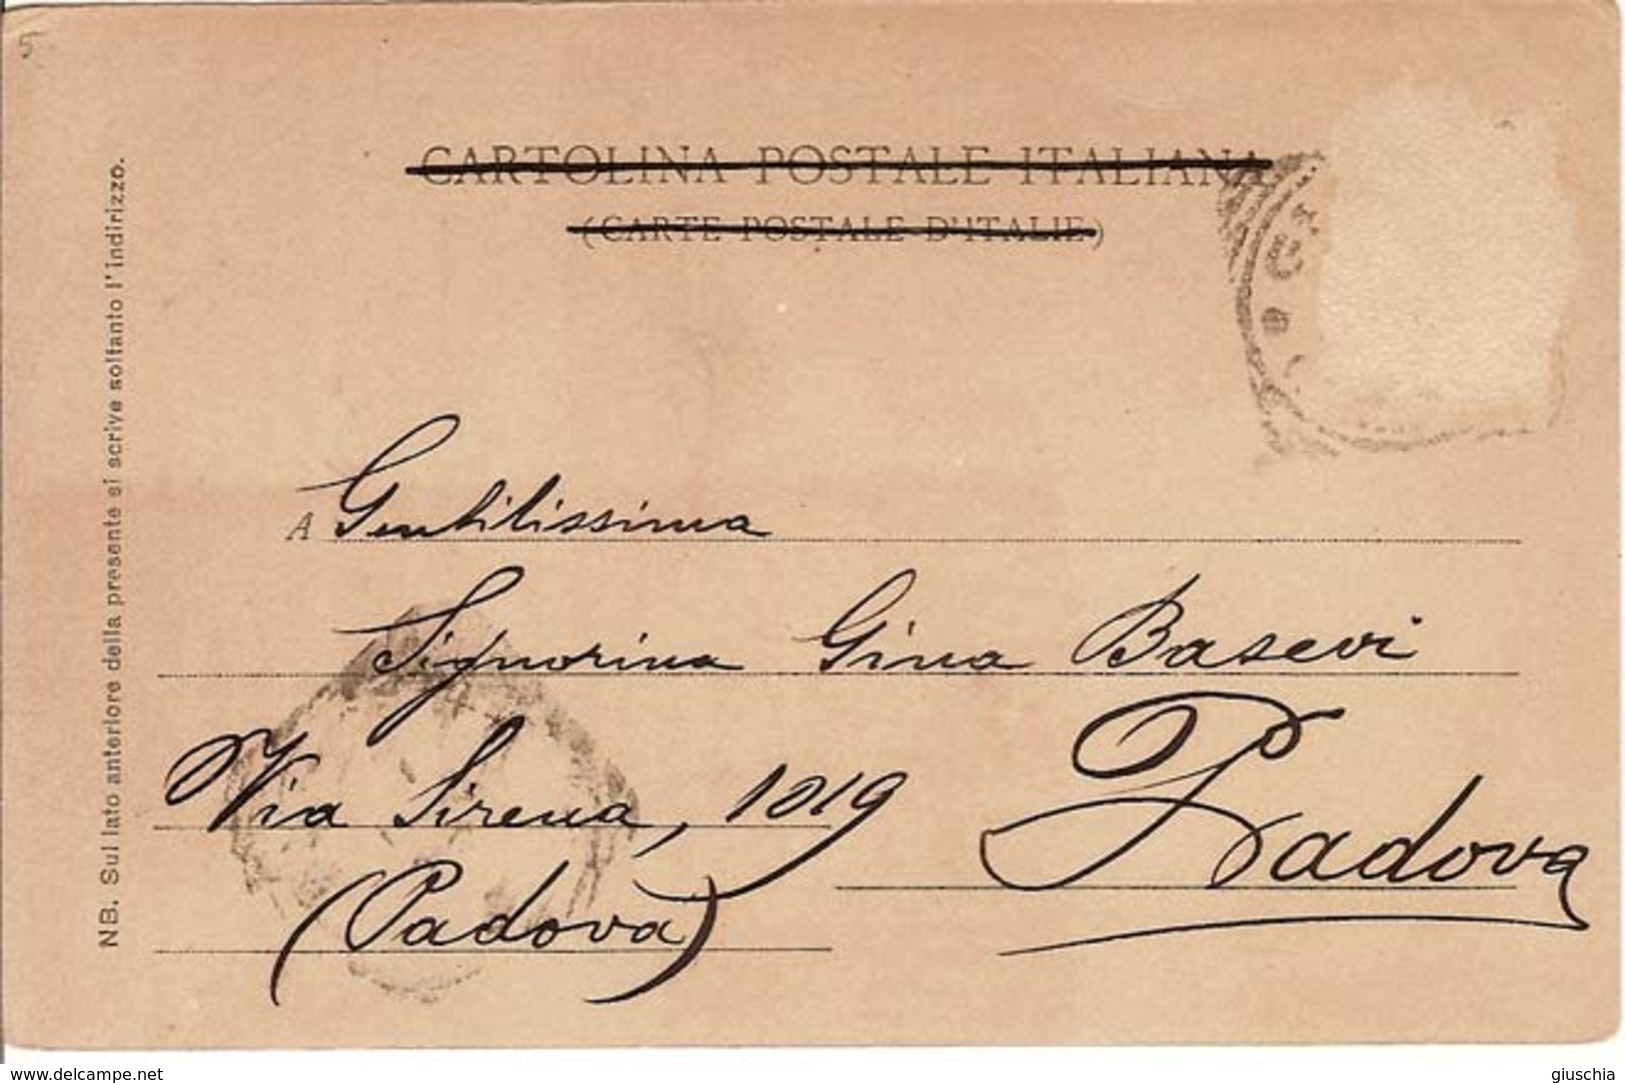 5
CARTOLINA POSTALE ITALIANA
(CARTE POSTALE D'ITALIE)
NB. Sul lato anteriore della presente si scrive soltanto l'indirizzo.
A Gentilissima
Signorina Gina Basevi
Via Sirena, 1019
Padova
(Padova)
www.delcampe.net
giuschia